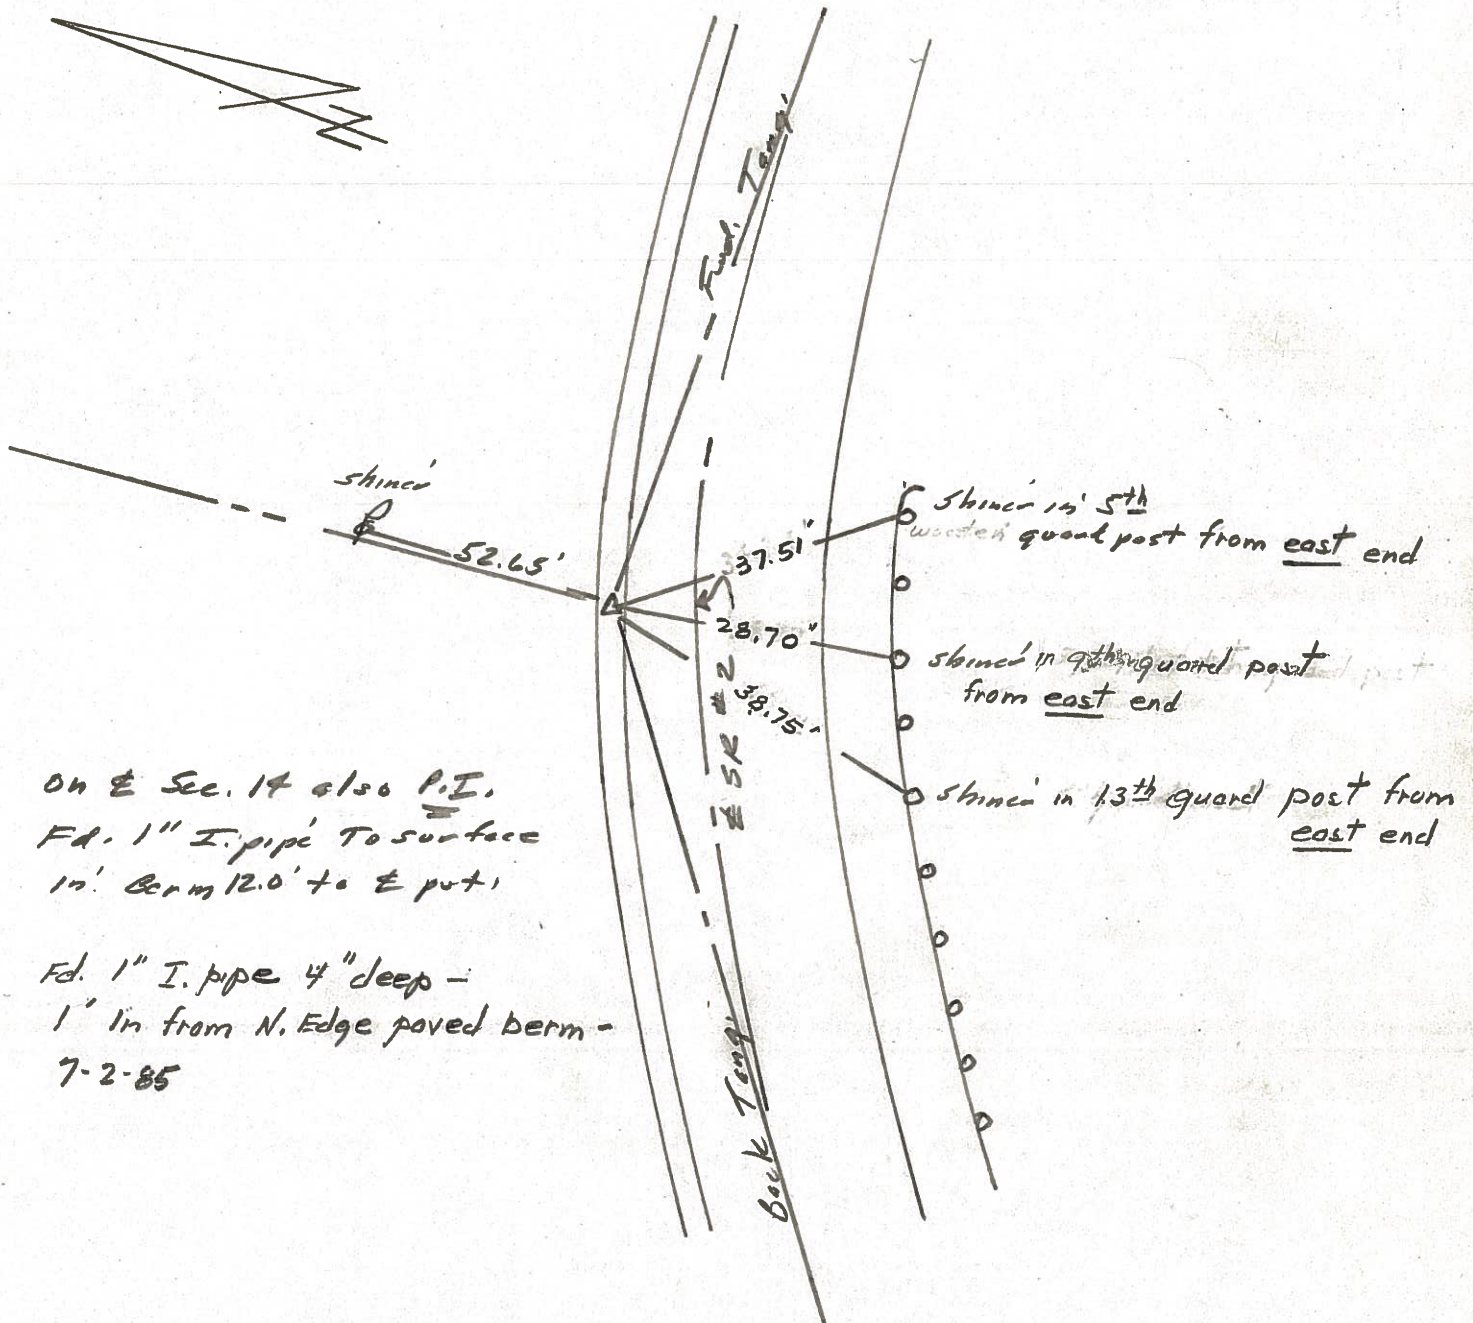 N
Fwd. Tang.
shiner
52.65'
37.51'
28.70'
38.75'
℄ SR #2
Back Tang.
shiner in 5th
wooden guard post from east end
shiner in 9th guard post
from east end
shiner in 13th guard post from
east end
on ℄ Sec. 14 also P.I.
Fd. 1" I. pipe To surface
in Berm 12.0' to ℄ pvt.
Fd. 1" I. pipe 4" deep -
1' in from N. Edge paved berm -
7-2-85